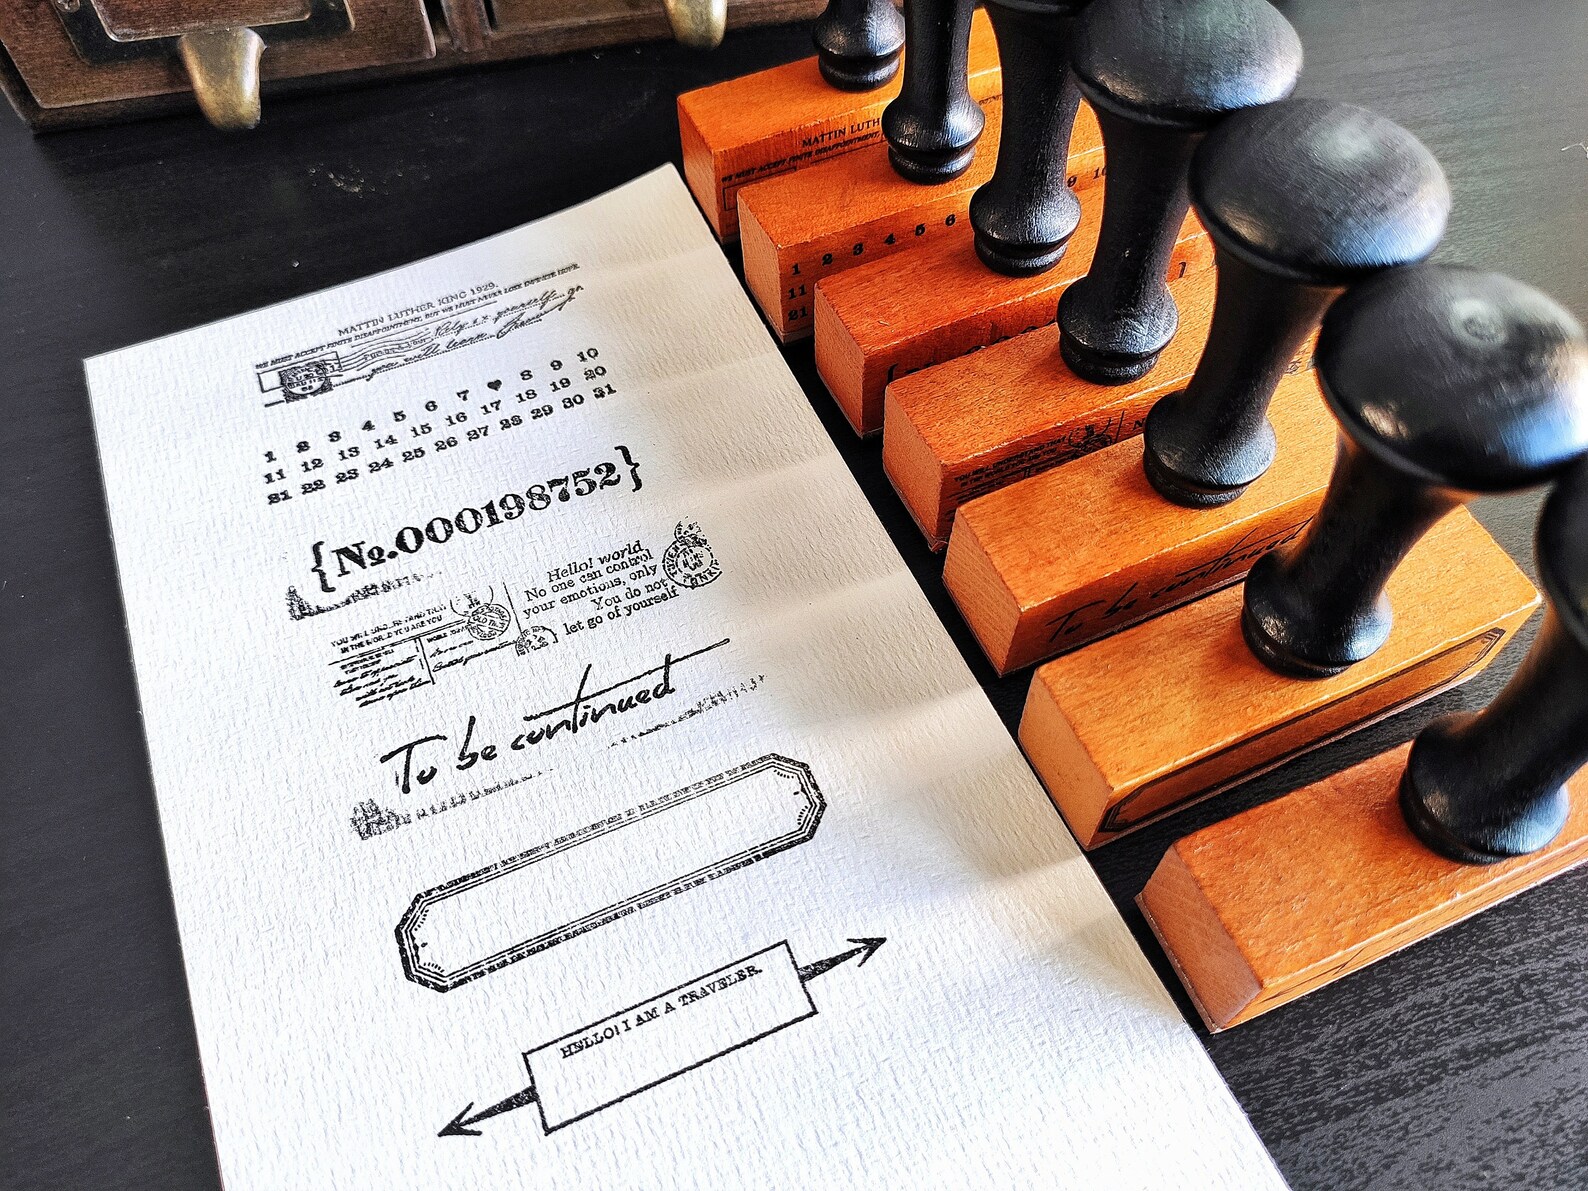 MATTIN LUTHER KING 1929.
WE MUST ACCEPT FINITE DISAPPOINTMENT, BUT WE MUST NEVER LOSE INFINITE HOPE
Rely on yourself
you will learn
1 2 3 4 5 6 7 ♥ 8 9 10
11 12 13 14 15 16 17 18 19 20
21 22 23 24 25 26 27 28 29 30 31
{№.000198752}
Hello! world
No one can control
your emotions, only
You do not
let go of yourself
YOU WILL
IN THE WORLD. YOU ARE YOU
To be continued
HELLO! I AM A TRAVELER.
MATTIN LUTH
WE MUST ACCEPT FINITE DISAPPOINTMENT,
1 2 3 4 5 6 9 10
11
21
To be continued